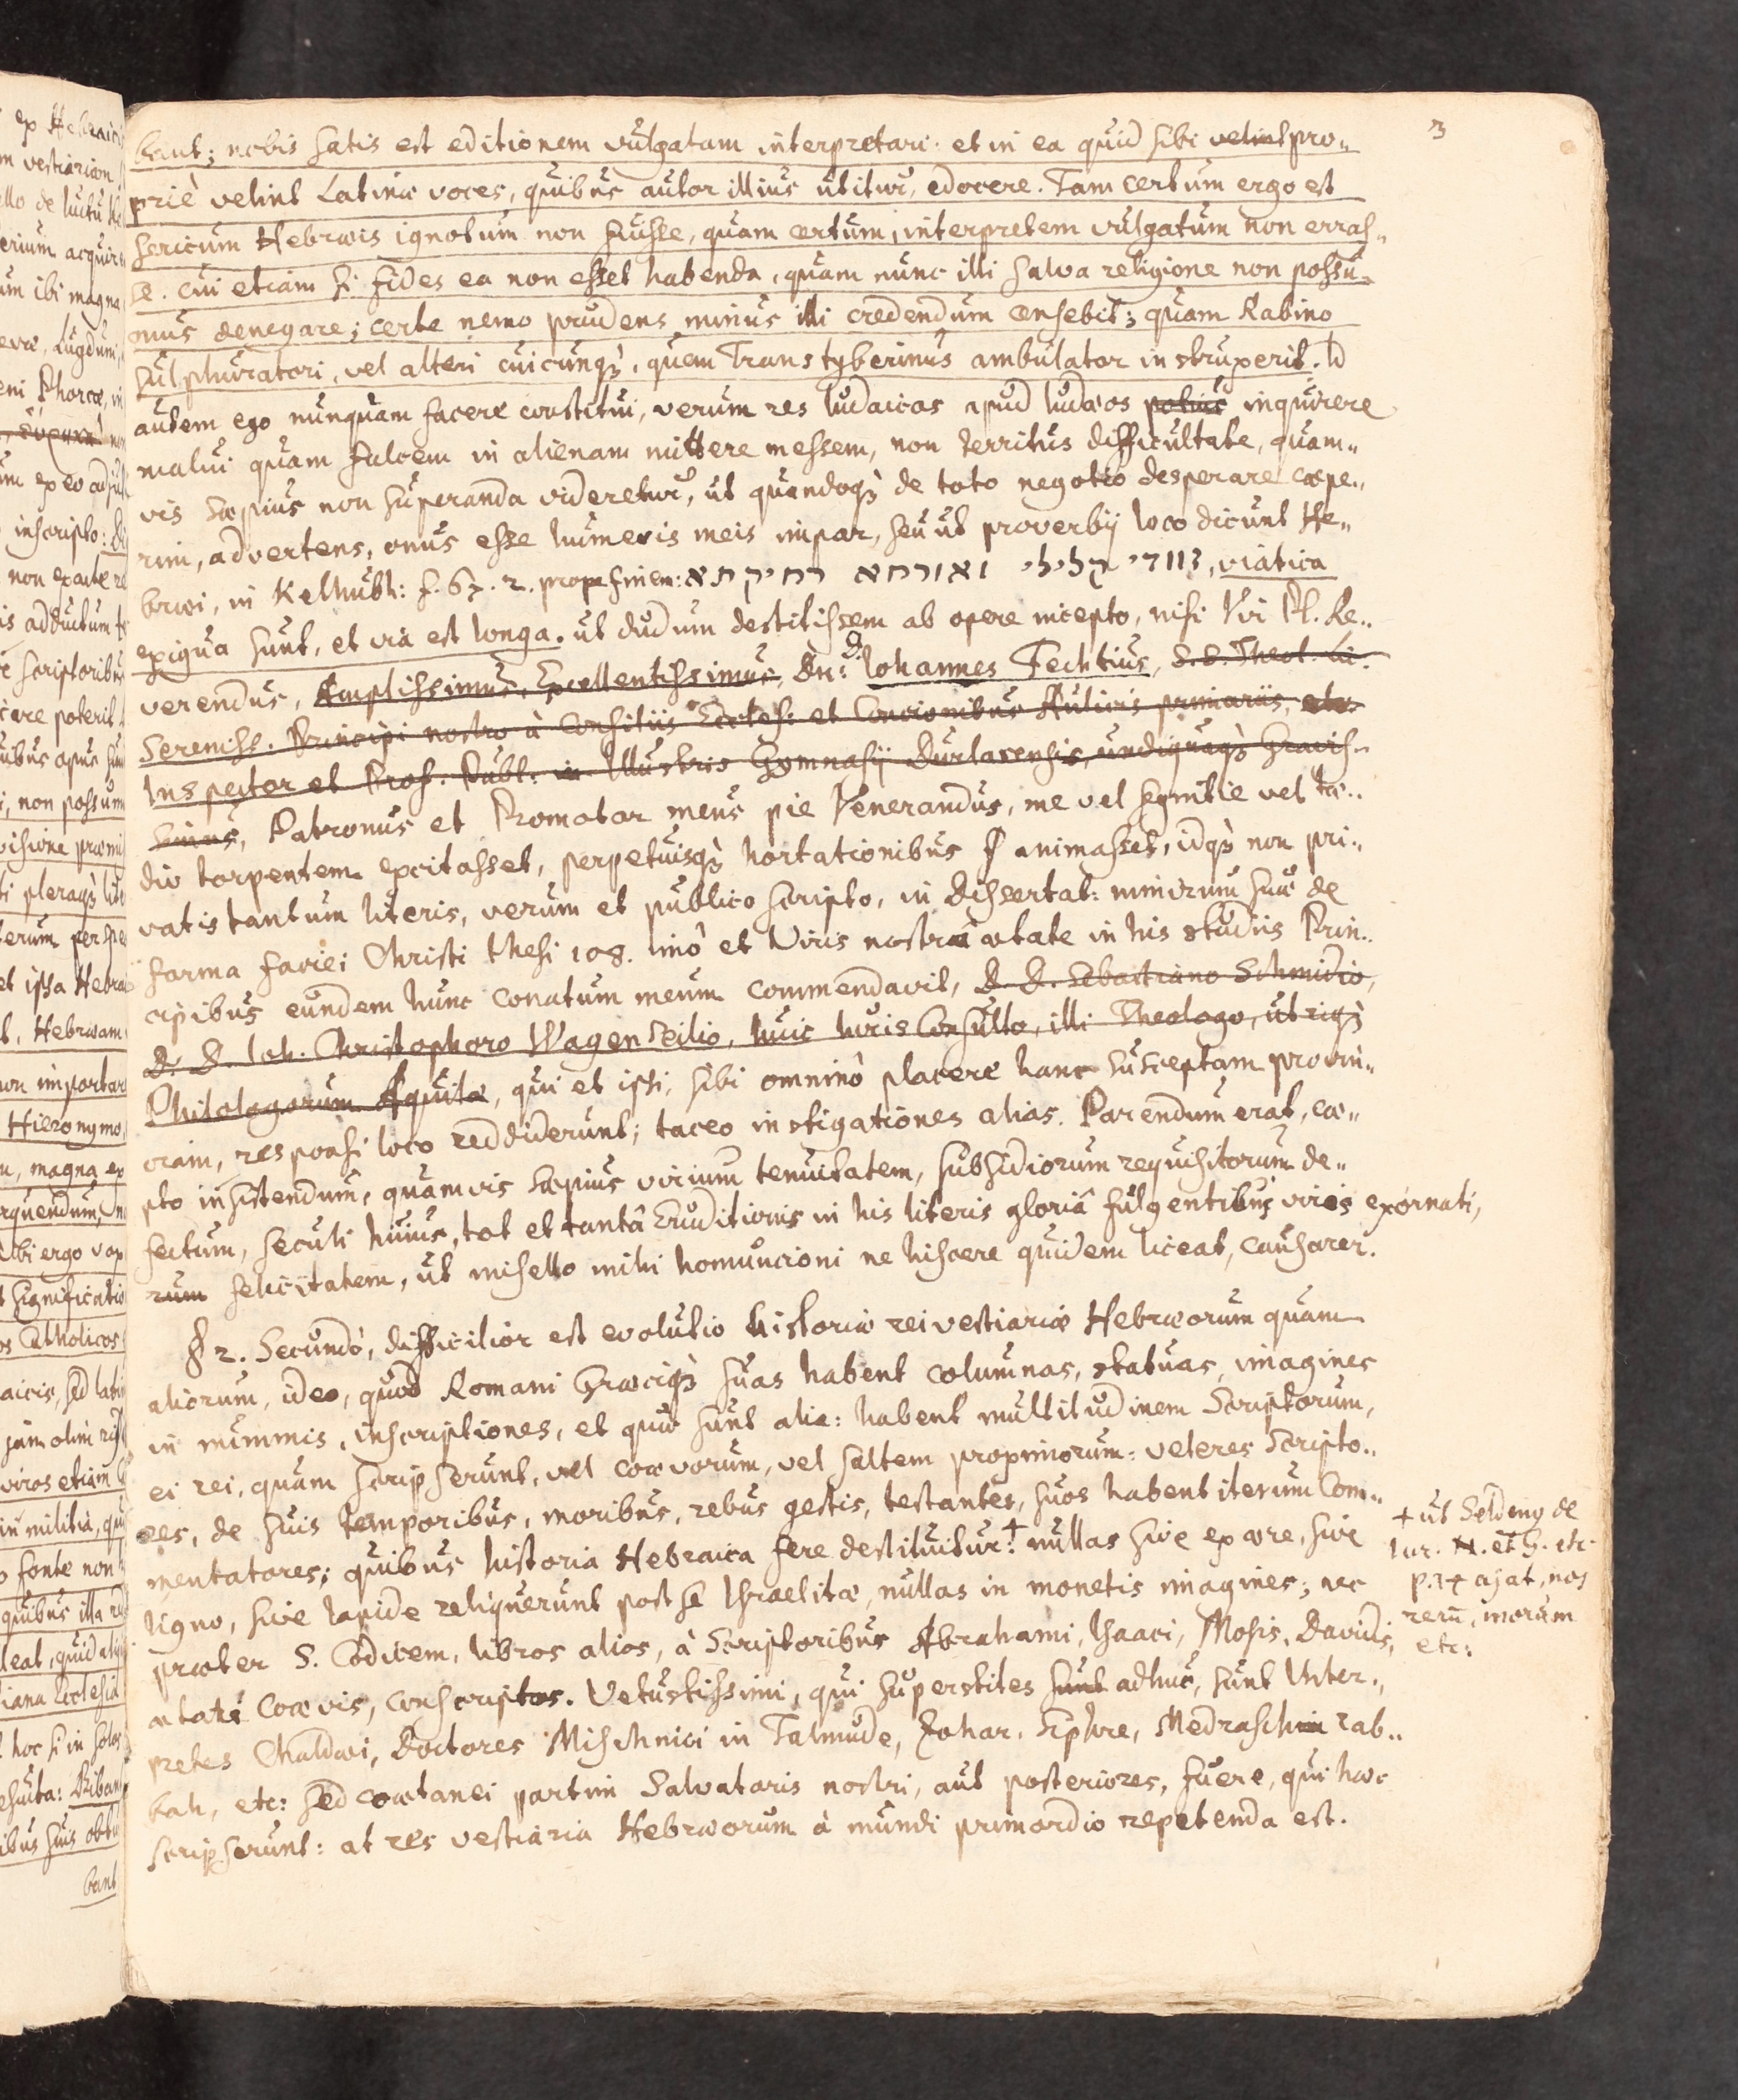 3
bant; nobis satis est editionem vulgatam interpretari: et in ea quid sibi velint pro„
priè velint Latinæ voces, quibus autor illius utitur, edocere. Tam certum ergo est
sericum Hebræis ignotum non fuisse, quam certum, interpretem vulgatum non erras„
se. cui etiam si fides ea non esset habenda, quam nunc illi salva religione non possu„
mus denegare; certe nemo prudens minus illi credendum censebit; quam Rabino
sulphuratori, vel alteri cuicunqꝫ, quem Transtyberinus ambulator instruxerit. Id
autem ego nunquam facere constitui, verum res Iudaicas apud Iudæos potius inquirere
malui quam falcem in alienam mittere messem, non territus difficultate, quam„
vis sæpius non superanda videretur, ut quandoqꝫ de toto negotio desperare cœpe„
rim, advertens, onus esse humeris meis impar, seu ut proverbij loco dicunt He„
bræi, in Kethubh: f. 67. 2. prope finem: זוודי קלילי ואורחא רחיקתא, viatica
exigua sunt, et via est longa. ut dudum destitissem ab opere incepto, nisi Vir Pl. Re„
verendus, Amplissimus, Excellentissimus, Dn: D. Iohannes Fechtius, S. S. Theol. Lic.
Sereniss. Principi nostro à Consiliis Eccles: et Concionibus Aulicis primariis, etc.
Inspector et Prof. Publ. in Illustris Gymnasij Durlacensis, undiquaqꝫ Gravis„
simus, Patronus et Promotor meus pie Venerandus, me vel segnitie vel tæ„
dio torpentem excitasset, perpetuisqꝫ hortationibus animasset, idqꝫ non pri„
vatis tantum literis, verum et publico scripto, in Dissertat: nimirum suæ de
forma faciei Christi thesi 108. imò et Viris nostrâ ætate in his studiis Prin„
cipibus eundem hunc conatum meum commendavit, D. D. Sebastiano Schmidio,
D. D. Ioh. Christophoro Wagenseilio, huic Iuris Consulto, illi Theologo, utriqꝫ
Philologorum Aquilæ, qui et ipsi, sibi omninò placere hanc susceptam provin„
ciam, responsi loco reddiderunt; taceo instigationes alias. Parendum erat, cœ„
pto insistendum, quamvis sæpius virium tenuitatem, subsidiorum requisitorum de„
fectum, seculi huius, tot et tantâ Eruditionis in his literis gloriâ fulgentibus viris exornati,
rum felicitatem, ut misello mihi homuncioni ne hiscere quidem liceat, causarer.
§ 2. Secundò, difficilior est evolutio historiæ rei vestiariæ Hebræorum quam
aliorum, ideo, quod Romani Græciqꝫ suas habent columnas, statuas, imagines
in nummis, inscriptiones, et quæ sunt alia: habent multitudinem Scriptorum,
ei rei, quam scripserunt, vel coævorum, vel saltem proximorum: veteres Scripto„
res, de suis temporibus, moribus, rebus gestis, testantes, suos habent iterum Com„
mentatores; quibus historia Hebraica fere destituitur:✝ nullas sive ex ære, sive
ligno, sive lapide reliquerunt post se Israelitæ, nullas in monetis imagines; nec
præter S. Codicem, libros alios, à Scriptoribus Abrahami, Isaaci, Mosis, Davidis,
ætati coævis, conscriptos. Vetustissimi, qui superstites sunt adhuc, sunt Inter„
pretes Chaldæi, Doctores Mischnici in Talmude, Zohar, Siphre, Medraschim rab„
bah, etc: sed coætanei partim Salvatoris nostri, aut posteriores, fuere, qui hæc
scripserunt: at res vestiaria Hebræorum à mundi primordio repetenda est.
✝ ut Seldenus de
Iur. N. et G. etc.
p. 14 ajat, nos
rerū, morum
etc: